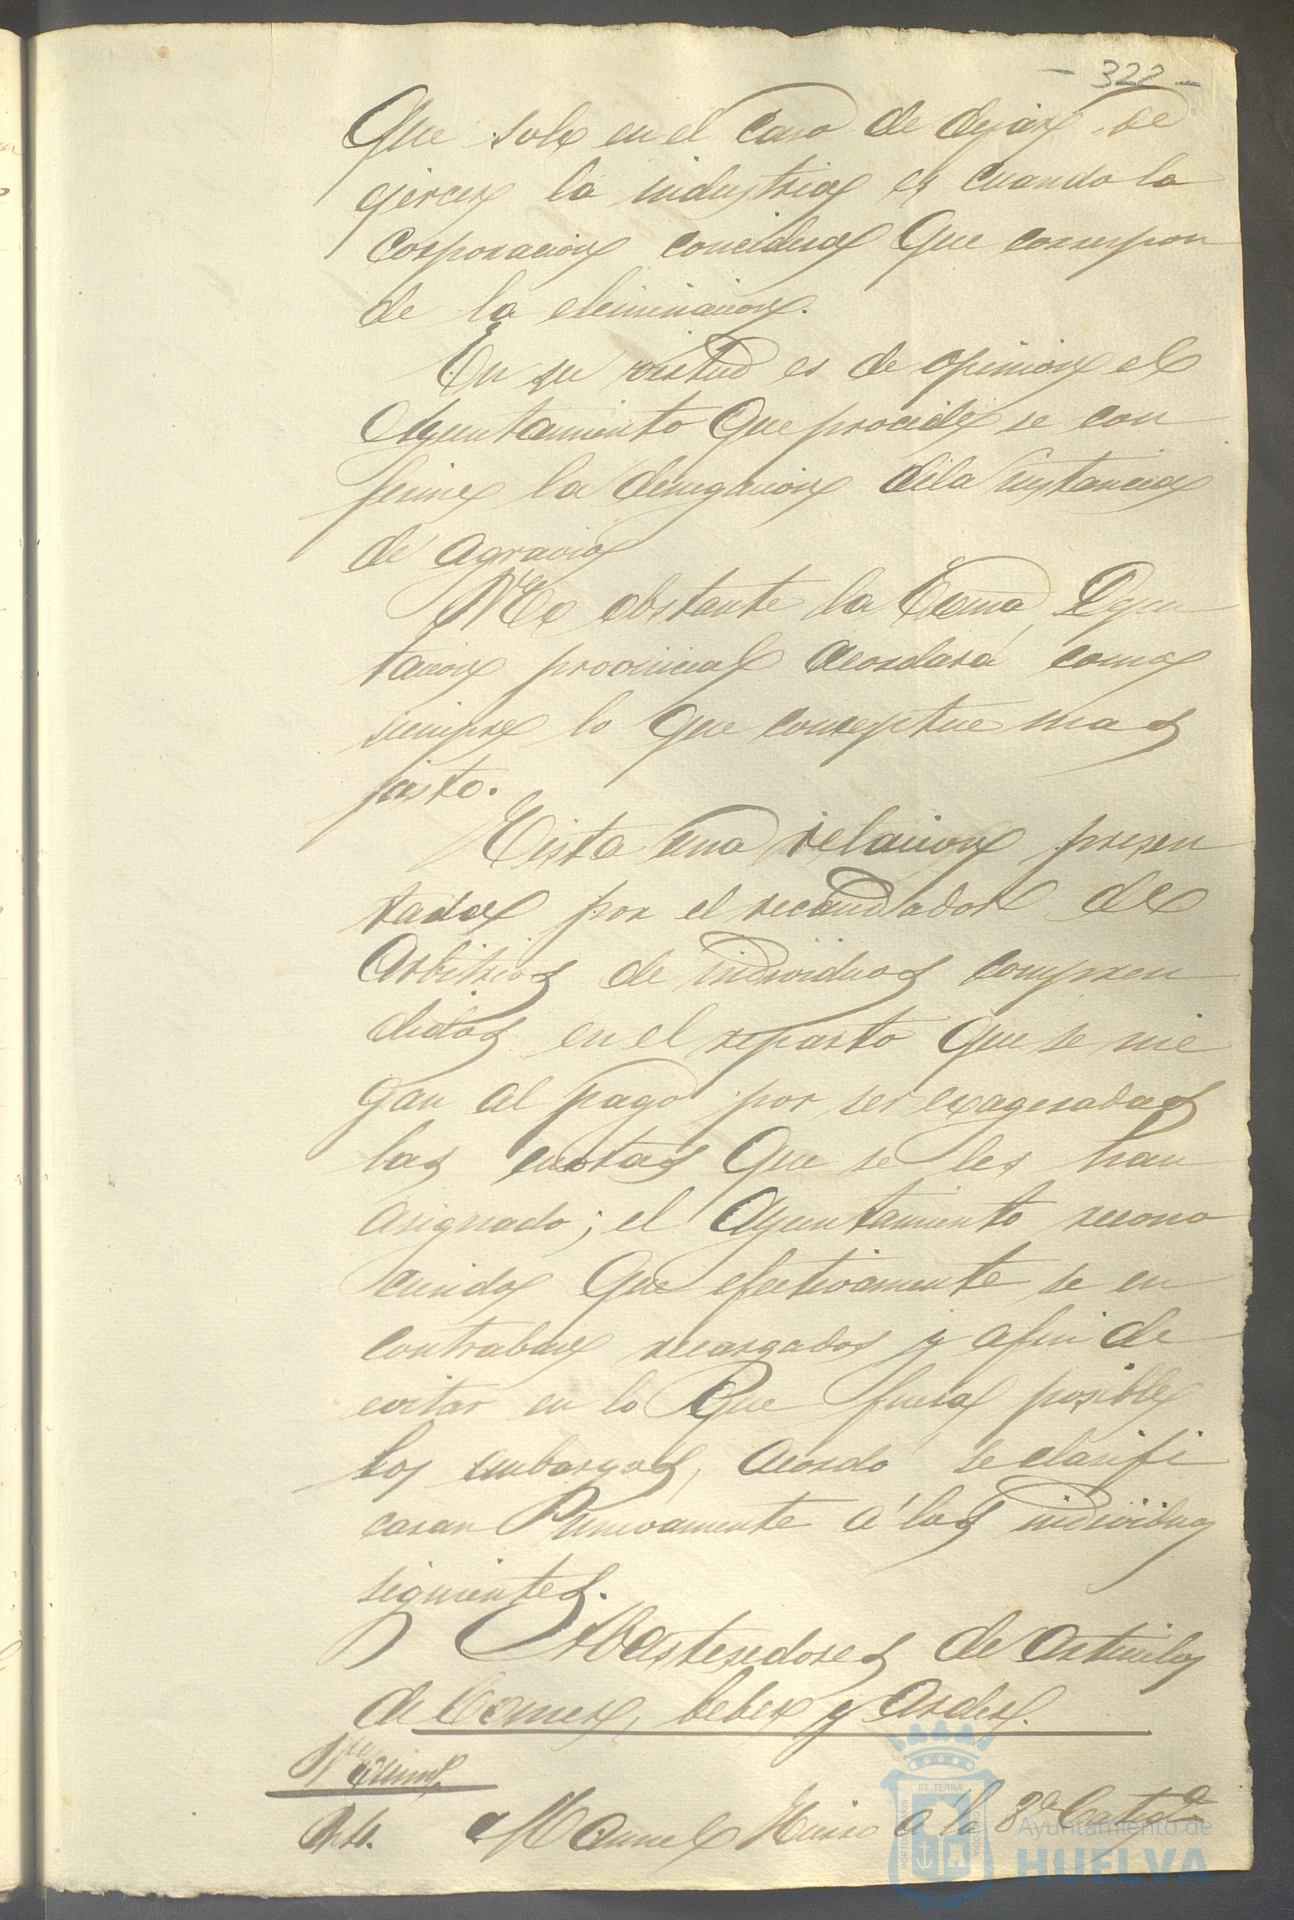 - 322 -
Que solo en el caso de dejar de
ejercer la industria es cuando la
Corporacion concidera que correspon
de la eliminacion.
En su virtud es de opinion el
Ayuntamiento que procede se con
firme la denegacion de la instancia
de agravio
No obstante la Exma Dipu
tacion provincial acordará como
siempre lo que conceptue mas
justo.
Vista una relacion presen
tada por el recaudador de
Arbitrios de individuos compren
didos en el reparto que se nie
gan al pago por ser exageradas
las cuotas que se les han
asignado; el Ayuntamiento recono
ciendo que efectivamente se en
contraban recargados y a fin de
evitar en lo que fuera posible
los embargos, acordó se clasifi
caran nuevamente á los individuos
siguientes.
Abastesedores de articulos
de Comer, beber y Arder.
Manuel á la 3ª Categª
Ayuntamiento de
HUELVA